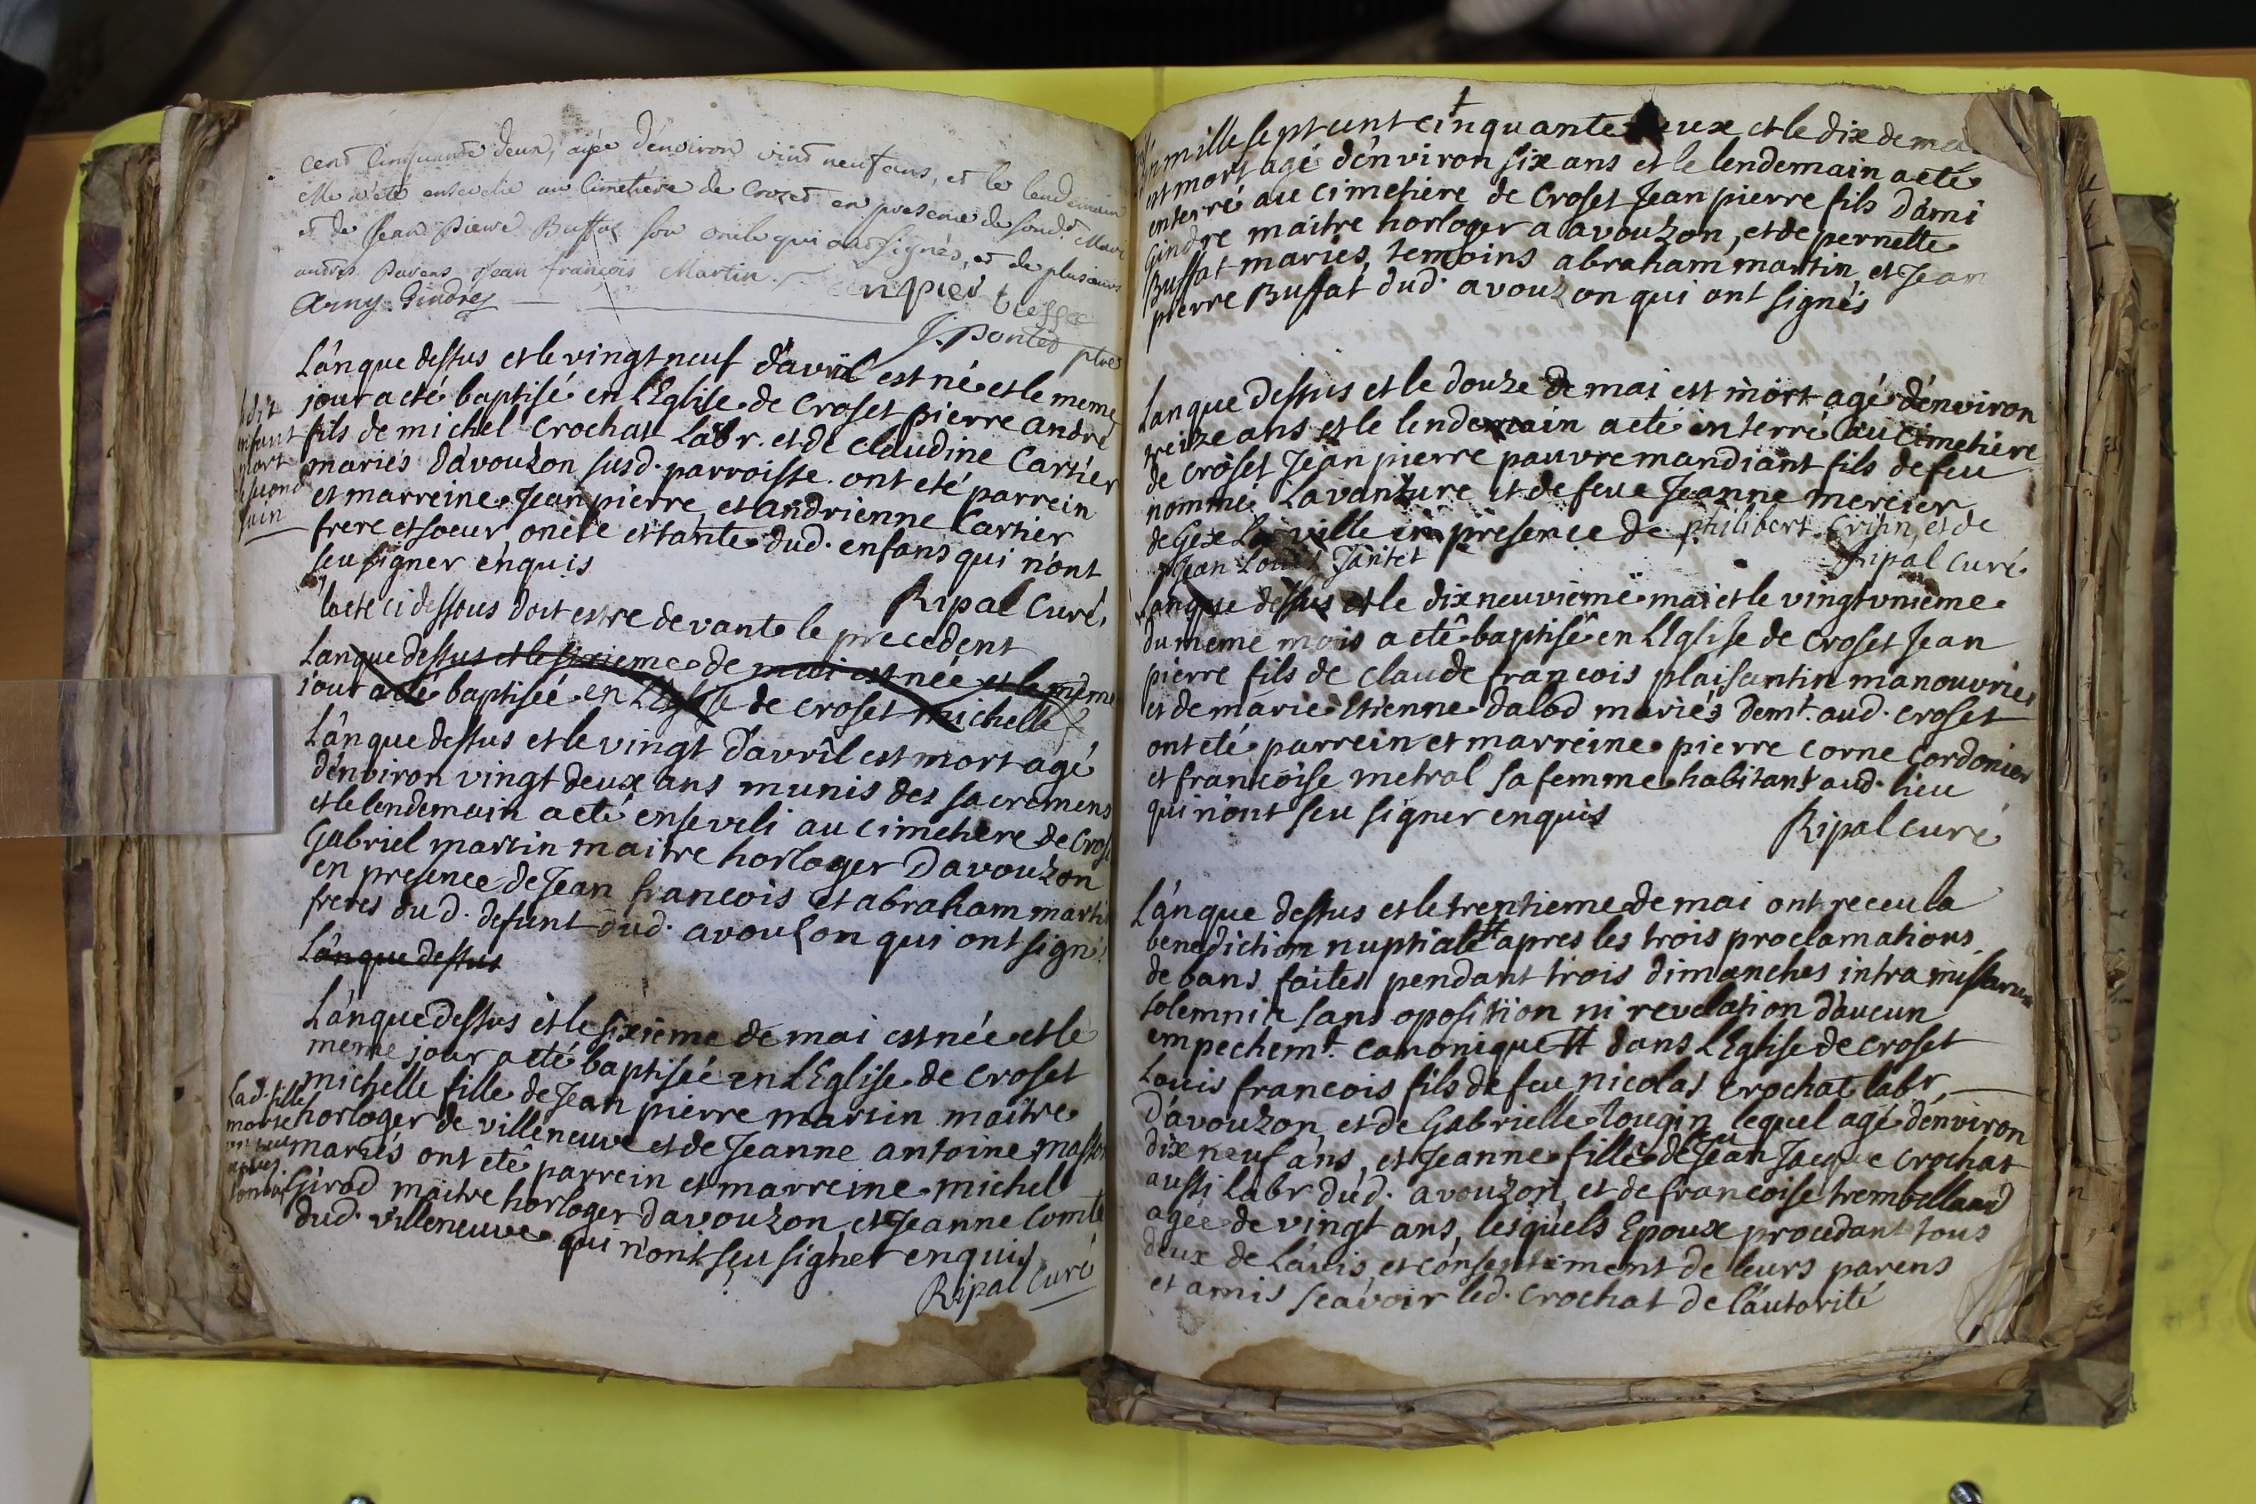 cent Cinquante deux, agée d'environ vint neuf ans, et le lendemain
elle a été ensevelie au Cimetière de Crozet en presence de sond. Mari
et de Jean Pierre Buffat son oncle qui ont signés, et de plusieurs
autres Parens Jean françois Martin
Amy Gindre
J. Pontet ptre
L'anque dessus et le vingt neuf d'avril est né et le meme
jour a eté baptisé en l'Eglise de Croset pierre andré
fils de michel Crochat Labr. et de Claudine Cartier
mariés d'avouzon susd. parroisse. ont eté parrein
et marreine Jean pierre, et andrienne Cartier
frere et soeur oncle et tante dud. enfans qui n'ont
seu signer enquis
Ripal Curé
ledit
enfant
mort
second
juin
lacte ci dessous doit estre devant le precedent
Lanque dessus et le sixieme de mai est née et le meme
jour a eté baptiséé en L'Eglise de Croset michelle
L'anque dessus et le vingt d'avril est mort agé
d'environ vingt deux ans munis des sacremens
et le lendemain a eté enseveli au cimetiere de Croset
Gabriel martin maitre horloger D'avouzon
en presence de Jean francois et abraham martin
freres dud. defunt dud. avouzon qui ont signés
L'anque dessus
L'anque dessus et le sixieme de mai est née et le
meme jour a eté baptiséé en L'Eglise de Croset
michelle fille de Jean pierre martin maitre
horloger de villeneuve et de Jeanne antoine masson
mariés ont eté parrein et marreine michel
Girod maitre horloger D'avouzon et Jeanne Comte
dud. villeneuve qui n'ont seu signer enquis
Ripal Curé
Lad. fille
morte
L'an mille sept cent cinquante deux et le dix de mai
est mort agé d'environ six ans et le lendemain a eté
enterré au cimetiere de Croset Jean pierre fils d'ami
Gindre maitre horloger a avouzon, et de pernette
Buffat mariés, temoins abraham martin et Jean
pierre Buffat dud. avouzon qui ont signés
Lanque dessus et le douze de mai est mort agé d'environ
treize ans et le lendemain a eté interré au cimetiere
de Croset Jean pierre pauvre mandiant fils de feu
nommé Lavanture et de feue Jeanne mercier
de Gex La ville en presence de philibert Crisin, et de
Jean Louis Jantet
Ripal Curé
Lanque dessus et le dixneuvieme mai et le vingt unieme
du meme mois a eté baptisé en LEglise de Croset Jean
pierre fils de Claude francois plaisantin manouvrier
et de marie Etienne Dalod mariés demt. aud. Croset
ont eté parrein et marreine pierre Corne Cordonier
et francoise metral sa femme habitans aud. lieu
qui n'ont seu signer enquis
Ripal Curé
L'anque dessus et le trentieme de mai ont receu la
benediction nuptiale apres les trois proclamations
de bans faites pendant trois dimanches intra missarum
solemnia sans oposition ni revelation d'aucun
empechemt. canonique dans L'Eglise de Croset
Louis francois fils de feu nicolas Crochat labr
D'avouzon, et de Gabrielle Tougin lequel agé d'environ
dix neuf ans, et Jeanne fille de feu Jean Jacque Crochat
aussi Labr dud. avouzon, et de francoise trembelland
agée de vingt ans, lesquels Epoux procedant tous
deux de L'avis et consentiment de leurs parens
et amis scavoir led. Crochat de l'autorité